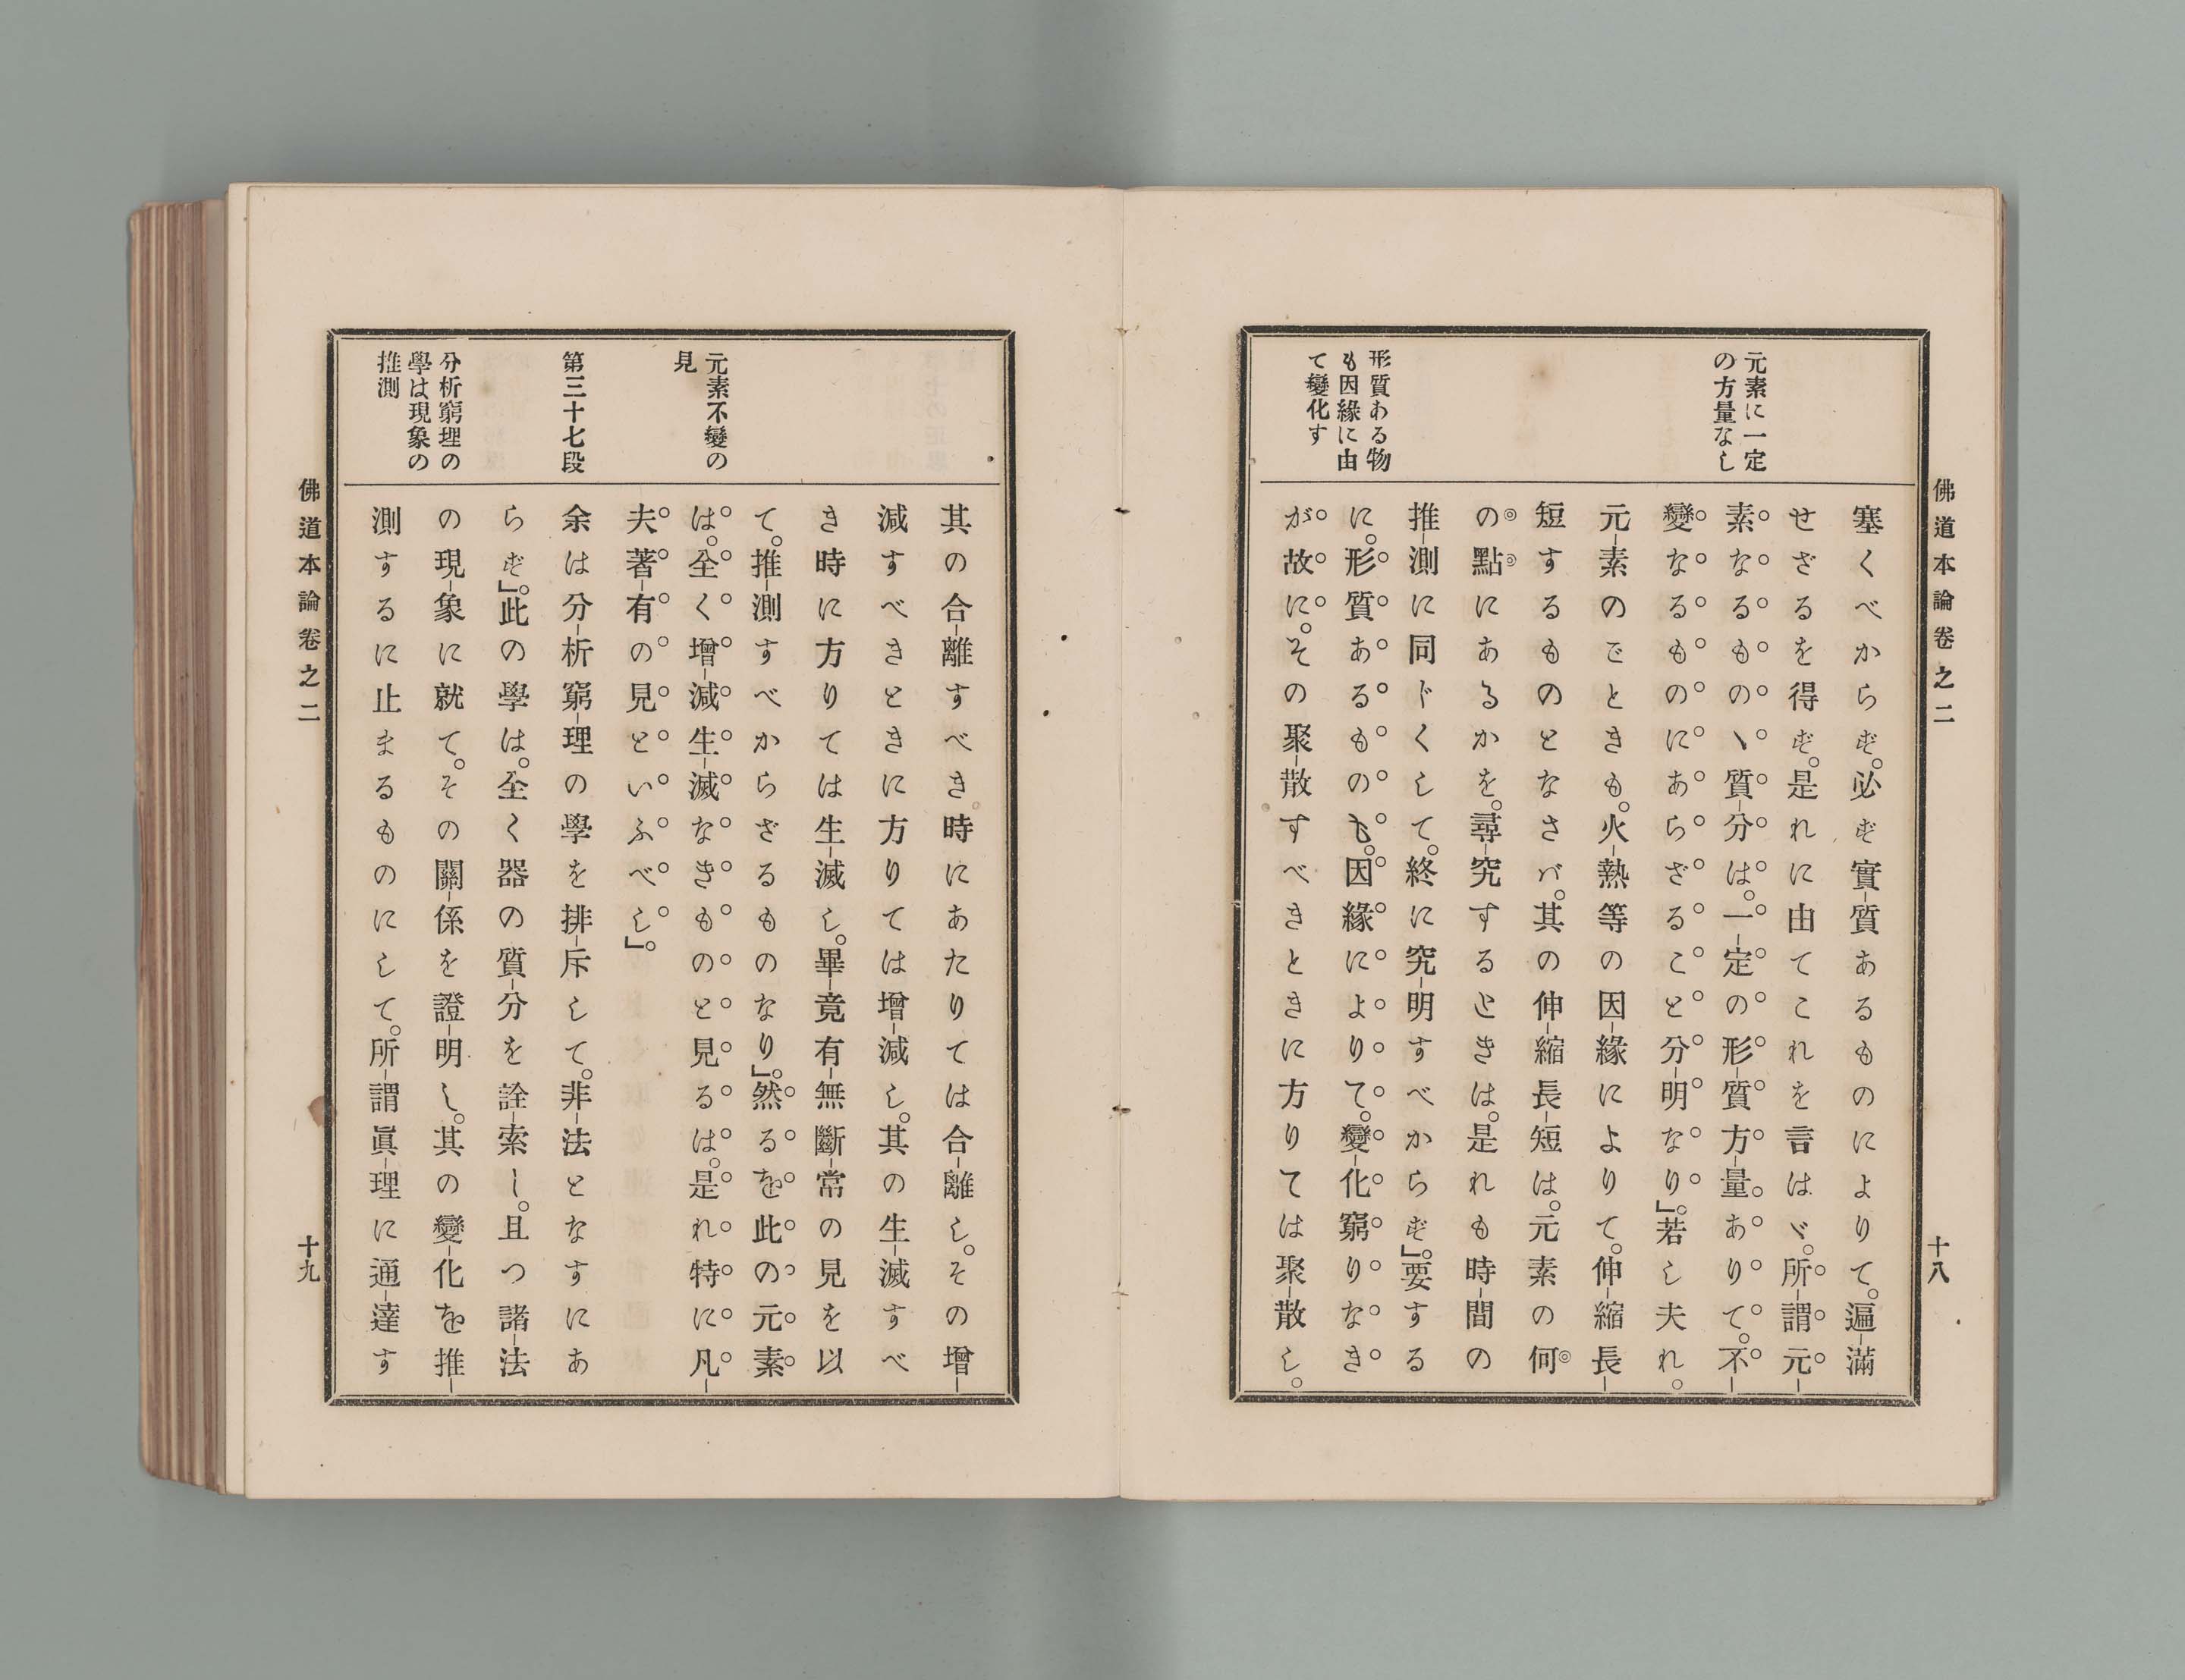 佛道本論卷之二
十八
元素に一定
の方量なし
形質ある物
も因緣に由
て變化す
塞くべからず。必ず實質あるものによりて。遍滿
せざるを得ず。是れに由てこれを言はゞ。所謂元
素なるものヽ質分は。一定の形質方量ありて。不
變なるものにあらざること分明なり」。若し夫れ。
元素のごときも。火熱等の因緣によりて。伸縮長
短するものとなさバ。其の伸縮長短は。元素の何
の點にあるかを。尋究するときは。是れも時間の
推測に同じくして。終に究明すべからず」。要する
に。形質あるものも。因緣によりて。變化窮りなき
が故に。その聚散すべきときに方りては聚散し。
元素不變の
見
第三十七段
分析窮理の
學は現象の
推測
其の合離すべき。時にあたりては合離し。その增
減すべきときに方りては增減し。其の生滅すべ
き時に方りては生滅し。畢竟有無斷常の見を以
て。推測すべからざるものなり」。然るを此の元素
は。全く增減生滅なきものと見るは。是れ特に凡
夫著有の見といふべし」。
余は分析窮理の學を排斥して。非法となすにあ
らず」。此の學は。全く器の質分を詮索し。且つ諸法
の現象に就て。その關係を證明し。其の變化を推
測するに止まるものにして。所謂眞理に通達す
佛道本論卷之二
十九